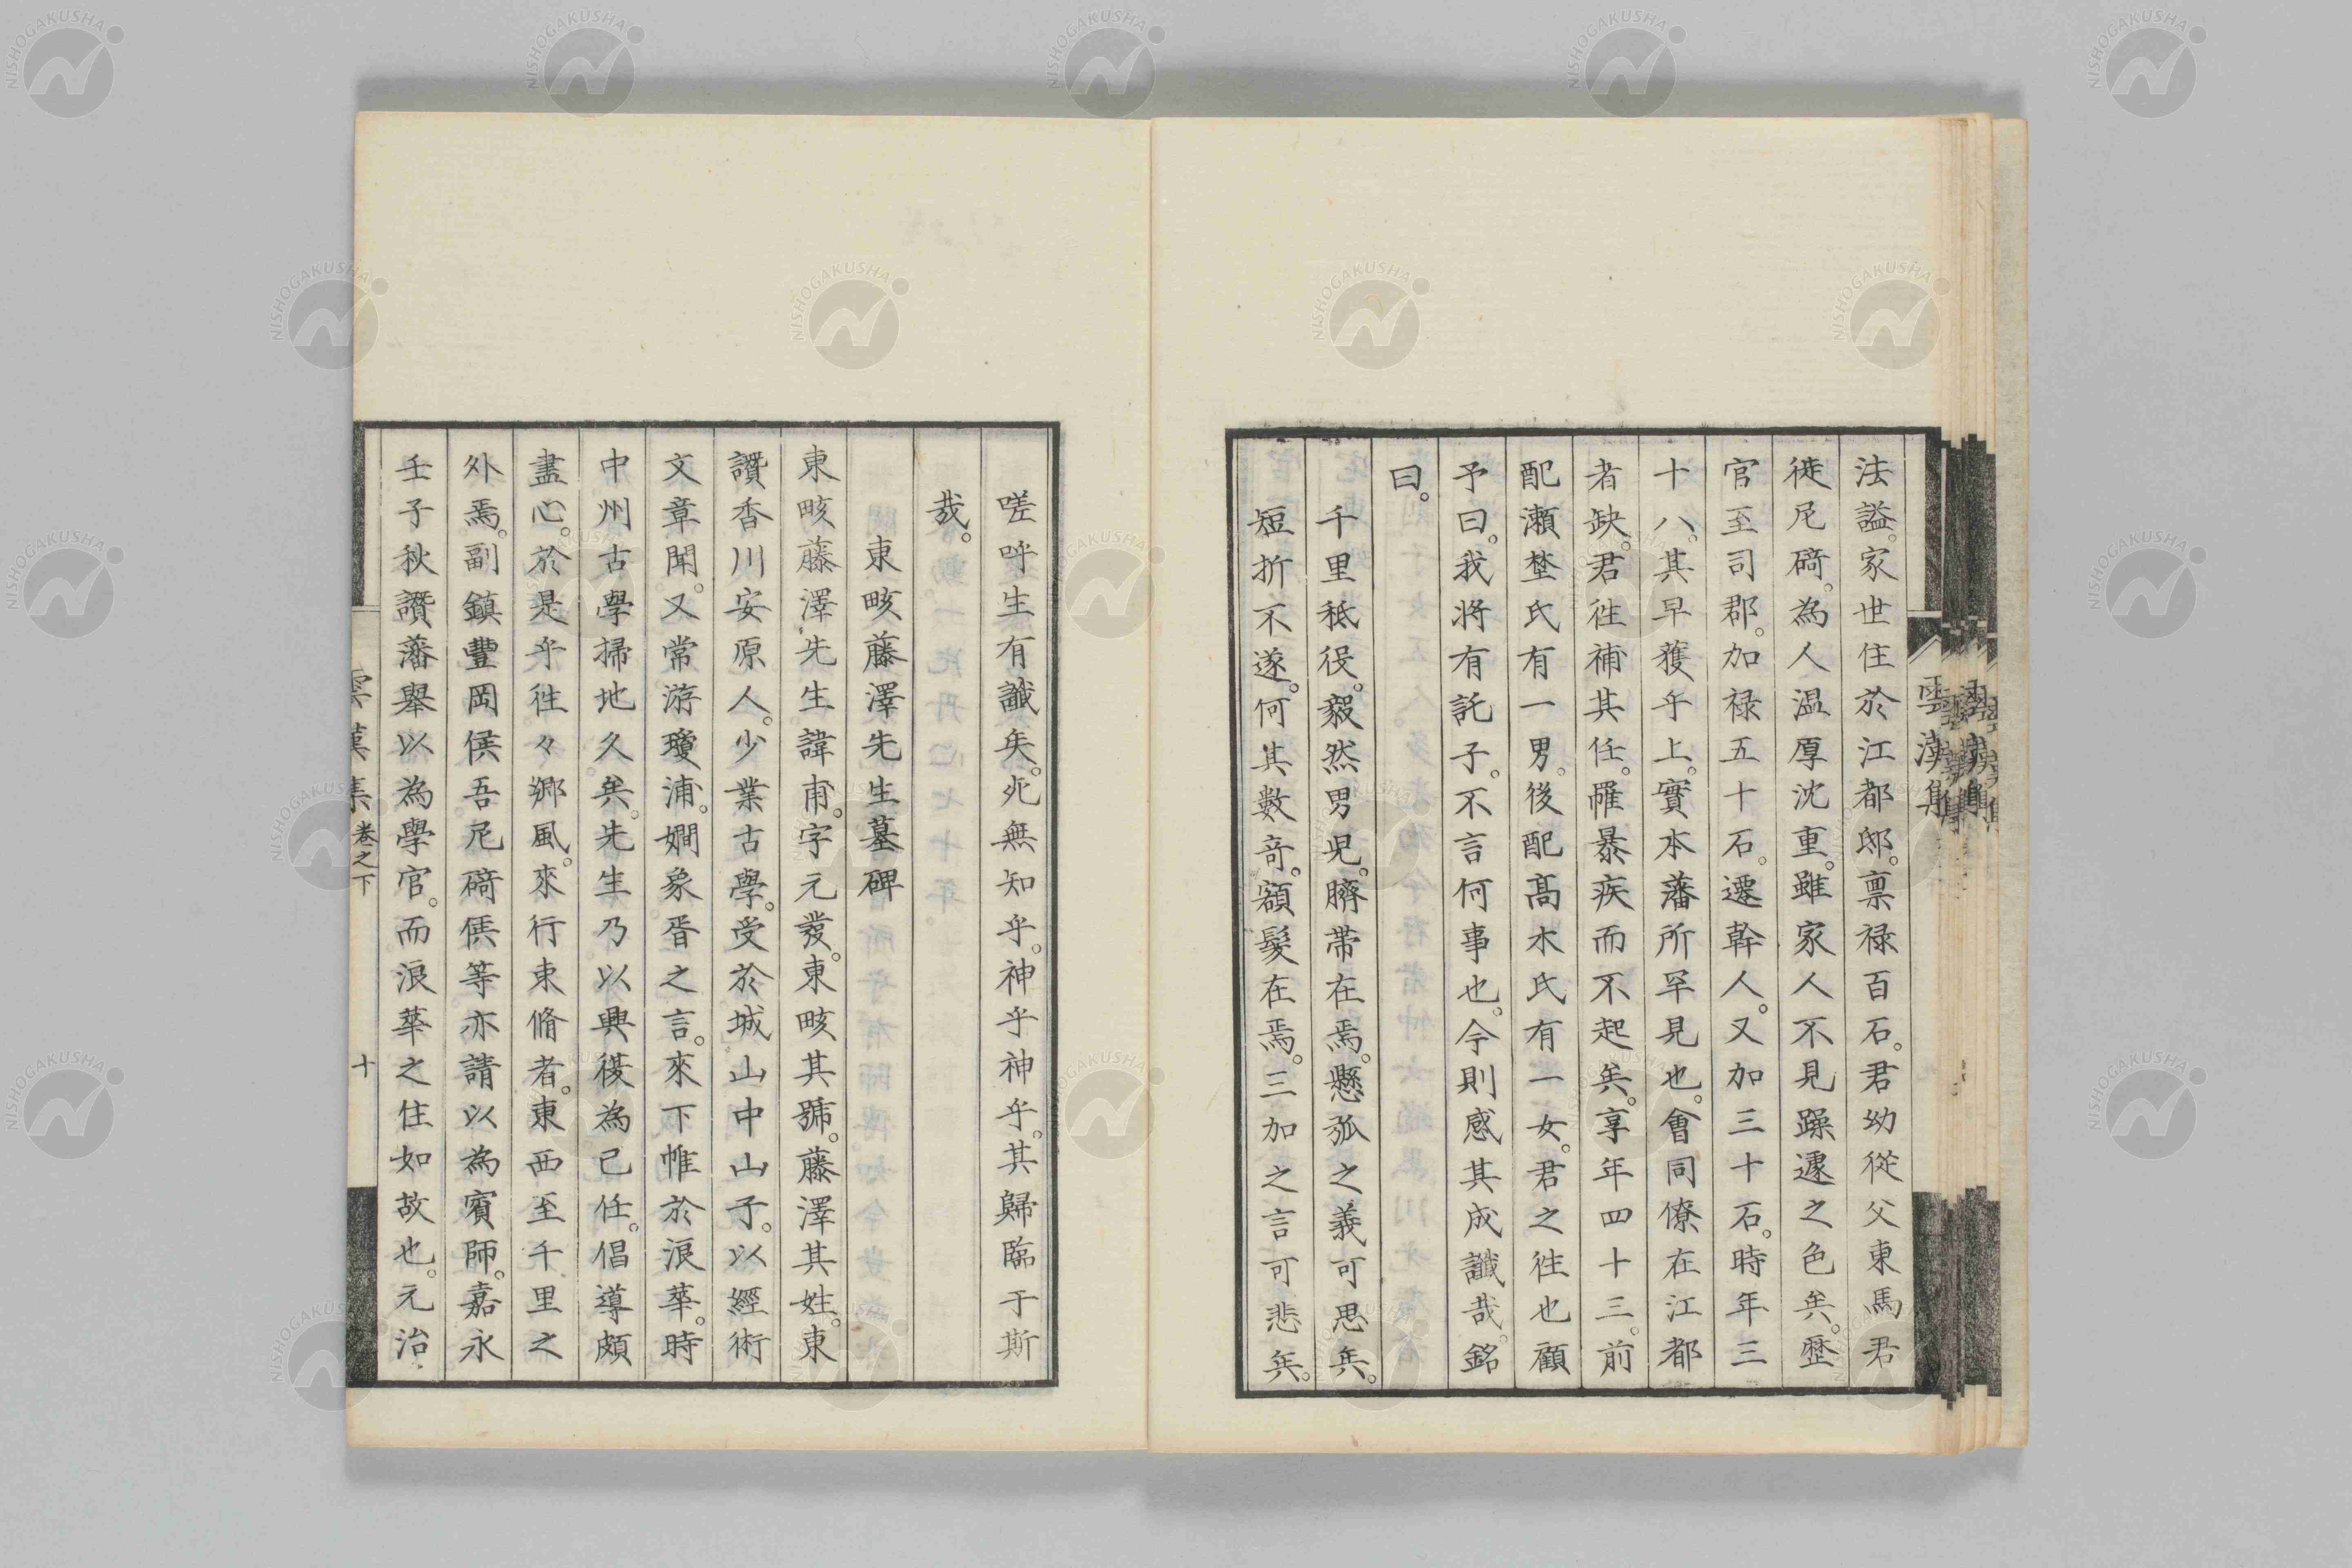 法謚。家世住於江都邸。禀禄百石。君幼從父東馬君
徙尼﨑。為人温厚沈重。雖家人不見躁遽之色矣。歴
官至司郡。加禄五十石。遷幹人。又加三十石。時年三
十八。其早獲乎上。實本藩所罕見也。會同僚在江都
者缺。君徃補其任。罹暴疾而不起矣。享年四十三。前
配瀬埜氏有一男。後配髙木氏有一女。君之徃也顧
予曰。我将有託子。不言何事也。今則感其成讖哉。銘
曰。
千里秪役。毅然男児。臍帯在焉。懸弧之義可思矣。
短折不遂。何其數竒。額髮在焉。三加之言可悲矣。
嗟呼生有讖矣。死無知乎。神乎神乎。其歸臨于斯
哉。
東畡藤澤先生墓碑
東畡藤澤先生諱甫。字元發。東畡其號。藤澤其姓。東
讚香川安原人。少業古學。受於城山中山子。以經術
文章聞。又常游瓊浦。嫺象胥之言。來下帷於浪華。時
中州古學掃地久矣。先生乃以興復為己任。倡導頗
盡心。於是乎徃々郷風。來行束脩者。東西至千里之
外焉。副鎮豐岡侯吾尼﨑侯等亦請以為賓師。嘉永
壬子秋讚藩舉以為學官。而浪華之住如故也。元治
雲漢集 卷之下 十
雲漢集
NISHOGAKUSHA